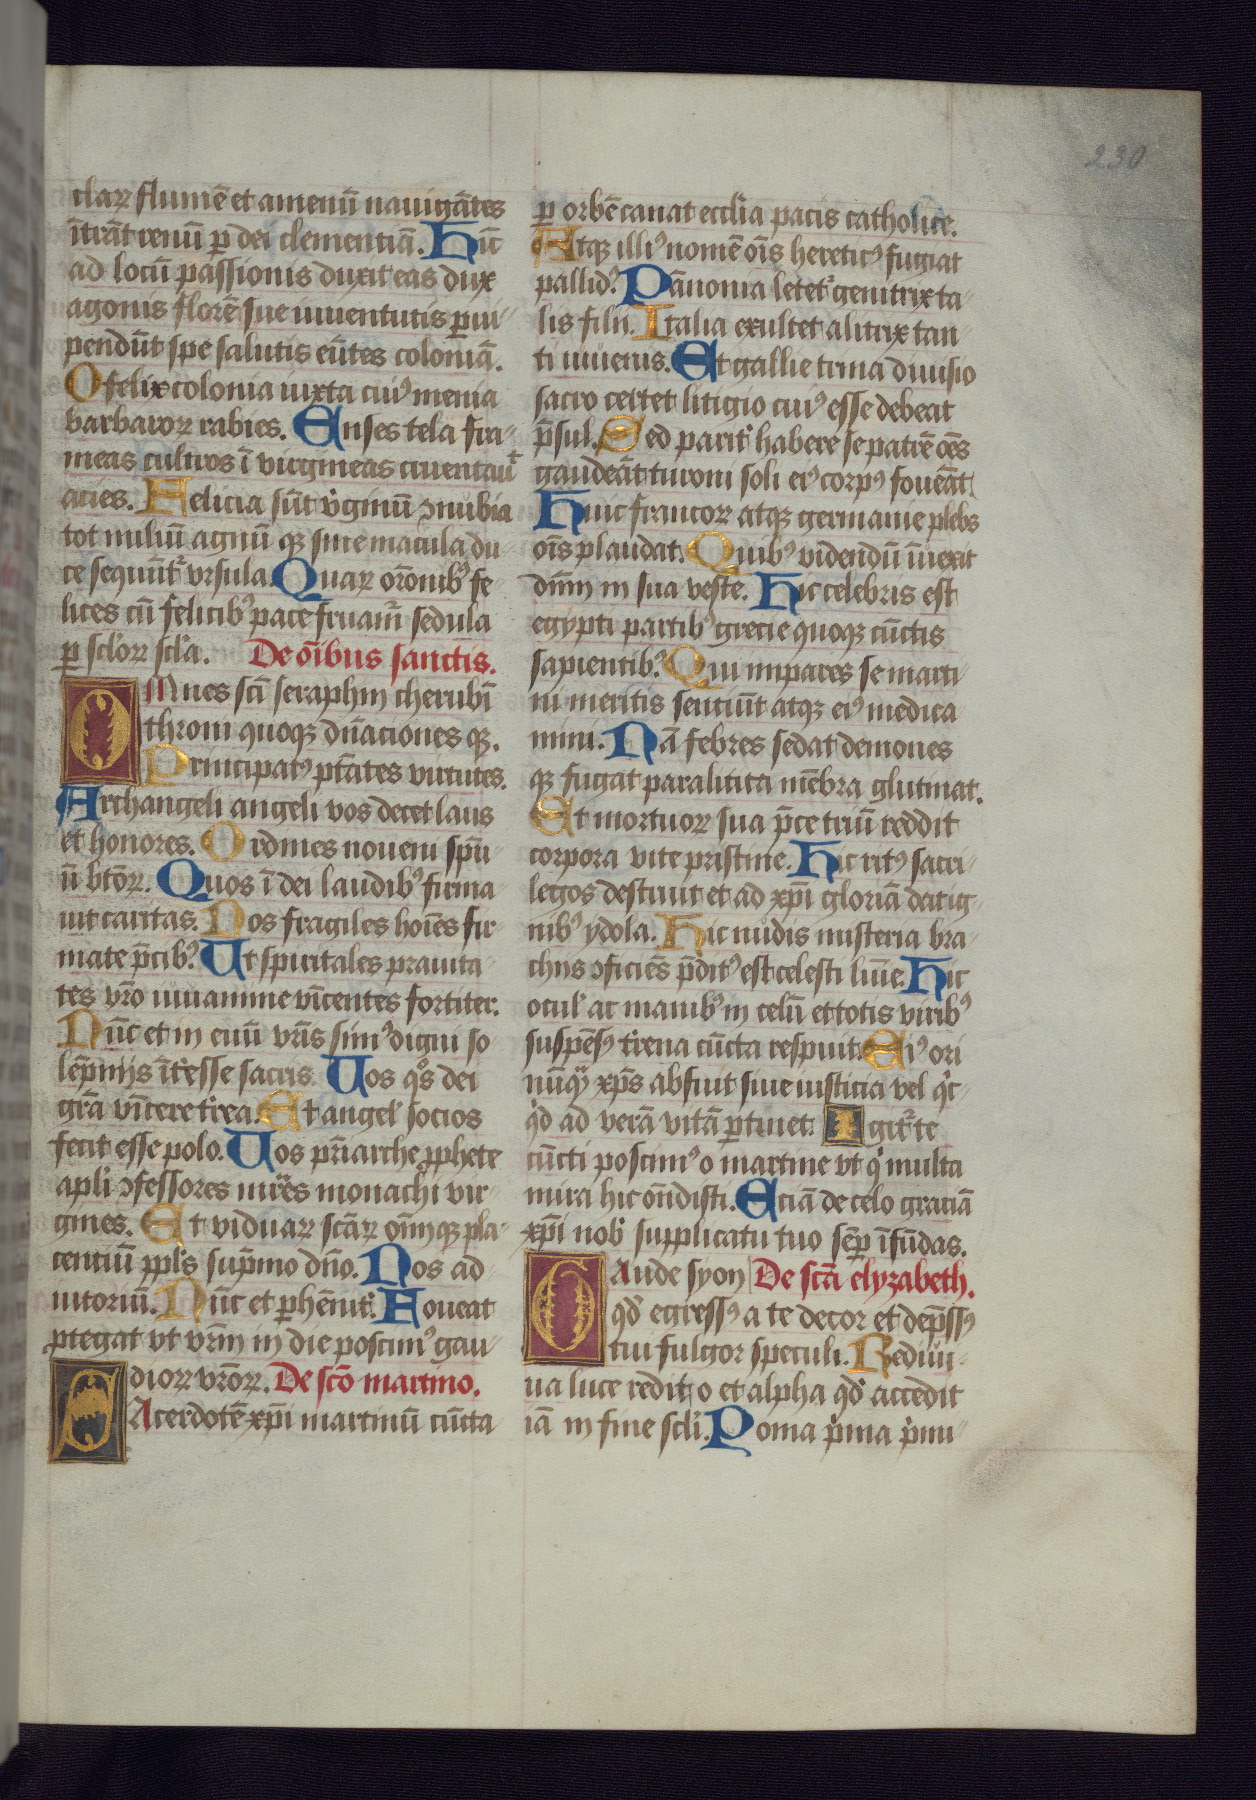 230
clarꝝ flumē et amenū nauigātes
ītrāt renū ꝑ dei clementiā. Hīc
ad locū passionis duxit eas dux
agonis florē sue iuuentutis ꝑui-
pendūt spe salutis eūtes coloniā.
O felix colonia iuxta cuiꝰ menia
barbaroꝝ rabies. Enses tela fra-
meas cultros ī virgineas cruentauͭ
acies. Felicia sūt v̓ginū ꝯnubia
tot miliū agnū qꝫ sine macula du-
ce sequūt᷑ vrsula. Quaꝝ orōnibꝰ fe-
lices cū felicibꝰ pace fruam᷑ sedula
ꝑ scl̓oꝝ scl̓a. De oībus sanctis.
OMnes scī seraphin cherubī
throni quoqꝫ dn̄aciones qꝫ.
Principatꝰ ptātes virtutes.
Archangeli angeli vos decet laus
et honores. Ordines noueni spū-
ū btōꝝ. Quos ī dei laudibꝰ firma-
uit caritas. Nos fragiles hoīes fir-
mate p̄cibꝰ. Ut spiritales prauita-
tes vr̄o iuuamine vīcentes fortiter.
Nūc et in euū vr̄is simꝰ digni so-
lēpnijs īt̓esse sacris. Uos qͦs dei
gr̄a vīcere t̓rea. Et angel̓ socios
fecit esse polo. Uos pr̄iarche ꝓphete
apl̓i ꝯfessores mr̄es monachi vir-
gines. Et viduaꝝ scāꝝ oīmqꝫ pla-
centiū ppl̓s sup̄mo dn̄o. Nos ad-
iutoriū. Nūc et ꝑhēnit̓. Foueat
ꝓtegat vt vr̄m in die poscimꝰ gau-
dioꝝ vr̄oꝝ. De scō martino.
SAcerdotē xp̄i martinū cūcta
ꝑ orbē canat eccl̓ia pacis catholice.
Atqꝫ illiꝰ nomē oīs hereticꝰ fugiat
pallidꝰ. Pānonia letet᷑ genitrix ta-
lis filii. Italia exultet alitrix tan-
ti iuuenis. Et gallie trina diuisio
sacro certet litigio cuiꝰ esse debeat
p̄sul. Sed parit̓ habere se patrē oēs
gaudeāt turoni soli eiꝰ corpꝰ foueāt.
Huic francoꝝ atqꝫ germanie plebs
oīs plaudat. Quibꝰ videndū īuexit
dn̄m in sua veste. Hic celebris est
egypti partibꝰ grecie quoqꝫ cūctis
sapientibꝰ. Qui impares se marti-
ni meritis sentiūt atqꝫ eiꝰ medica-
mini. Nā febres sedat demones
qꝫ fugat paralitica mēbra glutinat.
Et mortuoꝝ sua p̄ce triū reddit
corpora vite pristine. Hic ritꝰ sacri-
legos destruit et ad xp̄i gloriā dat ig-
nibꝰ ydola. Hic nudis misteria bra-
chiis ꝯficiēs p̄ditꝰ est celesti lūie. Hic
ocul̓ ac manibꝰ in celū et totis viribꝰ
suspēsꝰ t̓rena cūcta respuit. Eiꝰ ori
nūqͣ xp̄s abfuit siue iusticia vel qͥc-
qͥd ad verā vitā ꝑtinet. Igit᷑ te
cūcti poscimꝰ o martine vt qͥ multa
mira hic on̄disti. Eciā de celo graciā
xp̄i nob̓ supplicatu tuo sēꝑ īfūdas.
GAude syon De scā elyzabeth.
qd̓ egressꝰ a te decor et dep̄ssꝰ
tui fulgor speculi. Rediui-
ua luce redit o et alpha qd̓ accedit
iā in fine scl̓i. Roma p̓ma p̓mi-